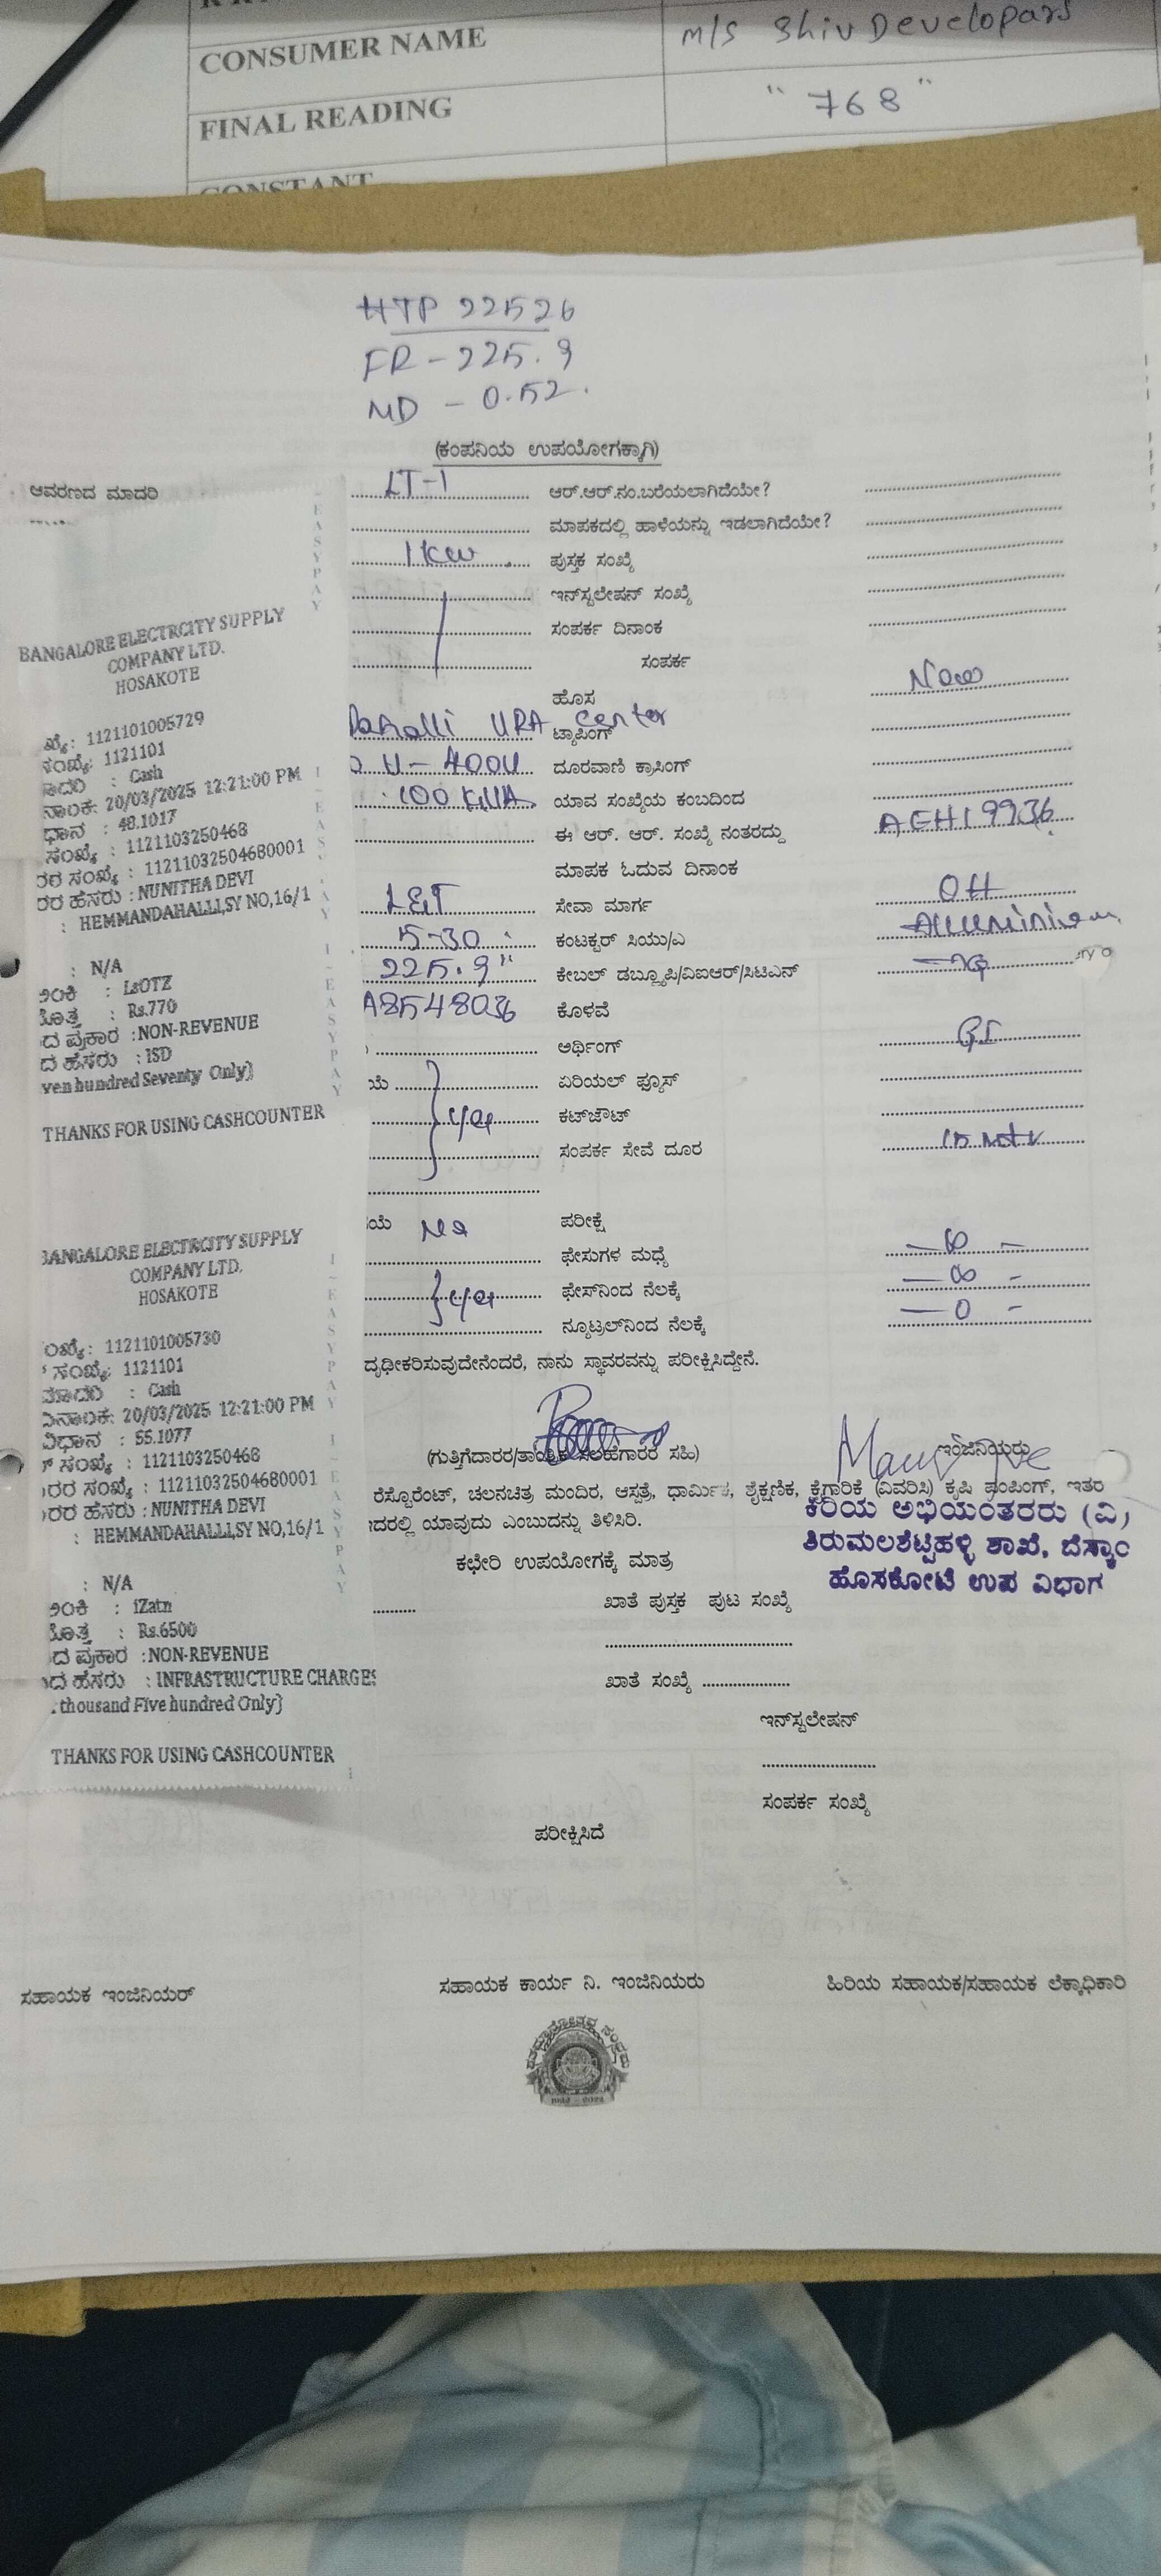 CONSUMER NAME M/S Shiv Developars
FINAL READING "768"
CONSTANT
HTP 22526
FR - 225.9
MD - 0.52.
(ಕಂಪನಿಯ ಉಪಯೋಗಕ್ಕಾಗಿ)
ಆವರಣದ ಮಾದರಿ LT-1 ಆರ್.ಆರ್.ನಂ.ಬರೆಯಲಾಗಿದೆಯೇ?
ಮಾಪಕದಲ್ಲಿ ಹಾಳೆಯನ್ನು ಇಡಲಾಗಿದೆಯೇ?
1kw ಪುಸ್ತಕ ಸಂಖ್ಯೆ
ಇನ್‌ಸ್ಟಲೇಷನ್ ಸಂಖ್ಯೆ
ಸಂಪರ್ಕ ದಿನಾಂಕ
ಸಂಪರ್ಕ
ಹೊಸ New
URA Center ಟ್ಯಾಪಿಂಗ್
400V ದೂರವಾಣಿ ಕ್ರಾಸಿಂಗ್
100 KVA ಯಾವ ಸಂಖ್ಯೆಯ ಕಂಬದಿಂದ
ಈ ಆರ್. ಆರ್. ಸಂಖ್ಯೆ ನಂತರದ್ದು AEH19936
ಮಾಪಕ ಓದುವ ದಿನಾಂಕ
L&T ಸೇವಾ ಮಾರ್ಗ OH
5-30 ಕಂಟಕ್ಟರ್ ಸಿಯು/ಎ Aluminium
225.9" ಕೇಬಲ್ ಡಬ್ಲ್ಯೂಪಿ/ವಿಐಆರ್/ಸಿಟಿಎನ್
A8548036 ಕೊಳವೆ
ಅರ್ಥಿಂಗ್ GI
ಯೆ ಏರಿಯಲ್ ಫ್ಯೂಸ್
yes ಕಟ್‌ಔಟ್
ಸಂಪರ್ಕ ಸೇವೆ ದೂರ 15 Mtr
ಯೆ No ಪರೀಕ್ಷೆ
ಫೇಸುಗಳ ಮಧ್ಯೆ — ∞ —
yes ಫೇಸ್‌ನಿಂದ ನೆಲಕ್ಕೆ — ∞ -
ನ್ಯೂಟ್ರಲ್‌ನಿಂದ ನೆಲಕ್ಕೆ — 0 -
ದೃಢೀಕರಿಸುವುದೇನೆಂದರೆ, ನಾನು ಸ್ಥಾವರವನ್ನು ಪರೀಕ್ಷಿಸಿದ್ದೇನೆ.
(ಗುತ್ತಿಗೆದಾರರ/ತಾಂತ್ರಿಕ ಸಲಹೆಗಾರರ ಸಹಿ) ಇಂಜಿನಿಯರು
ರೆಸ್ಟೋರೆಂಟ್, ಚಲನಚಿತ್ರ ಮಂದಿರ, ಆಸ್ಪತ್ರೆ, ಧಾರ್ಮಿಕ, ಶೈಕ್ಷಣಿಕ, ಕೈಗಾರಿಕೆ (ವಿವರಿಸಿ) ಕೃಷಿ ಪಂಪಿಂಗ್, ಇತರ
ಇದರಲ್ಲಿ ಯಾವುದು ಎಂಬುದನ್ನು ತಿಳಿಸಿರಿ.
ಕಿರಿಯ ಅಭಿಯಂತರರು (ವಿ)
ತಿರುಮಲಶೆಟ್ಟಿಹಳ್ಳಿ ಶಾಖೆ, ಬೆಸ್ಕಾಂ
ಹೊಸಕೋಟೆ ಉಪ ವಿಭಾಗ
ಕಛೇರಿ ಉಪಯೋಗಕ್ಕೆ ಮಾತ್ರ
ಖಾತೆ ಪುಸ್ತಕ ಪುಟ ಸಂಖ್ಯೆ
ಖಾತೆ ಸಂಖ್ಯೆ
ಇನ್‌ಸ್ಟಲೇಷನ್
ಸಂಪರ್ಕ ಸಂಖ್ಯೆ
ಪರೀಕ್ಷಿಸಿದೆ
ಸಹಾಯಕ ಇಂಜಿನಿಯರ್ ಸಹಾಯಕ ಕಾರ್ಯ ನಿ. ಇಂಜಿನಿಯರು ಹಿರಿಯ ಸಹಾಯಕ/ಸಹಾಯಕ ಲೆಕ್ಕಾಧಿಕಾರಿ
BANGALORE ELECTRCITY SUPPLY
COMPANY LTD.
HOSAKOTE
ಖ್ಯೆ: 1121101005729
ಸಂಖ್ಯೆ: 1121101
: Cash
ನಾಂಕ: 20/03/2025 12:21:00 PM
ಧಾನ : 48.1017
ಸಂಖ್ಯೆ : 1121103250468
ರರ ಸಂಖ್ಯೆ : 11211032504680001
ರರ ಹೆಸರು : NUNITHA DEVI
: HEMMANDAHALLI,SY NO,16/1
: N/A
: LsOTZ
: Rs.770
ದ ಪ್ರಕಾರ :NON-REVENUE
ದ ಹೆಸರು : ISD
ven hundred Seventy Only}
THANKS FOR USING CASHCOUNTER
BANGALORE ELECTRCITY SUPPLY
COMPANY LTD.
HOSAKOTE
ಂಖ್ಯೆ: 1121101005730
ಸಂಖ್ಯೆ: 1121101
ಮಾದರಿ : Cash
ದಿನಾಂಕ: 20/03/2025 12:21:00 PM
ವಿಧಾನ : 55.1077
ಸಂಖ್ಯೆ : 1121103250468
ರರ ಸಂಖ್ಯೆ : 11211032504680001
ರರ ಹೆಸರು : NUNITHA DEVI
: HEMMANDAHALLI,SY NO,16/1
: N/A
: iZatn
: Rs.6500
ದ ಪ್ರಕಾರ :NON-REVENUE
ದ ಹೆಸರು : INFRASTRUCTURE CHARGES
thousand Five hundred Only}
THANKS FOR USING CASHCOUNTER